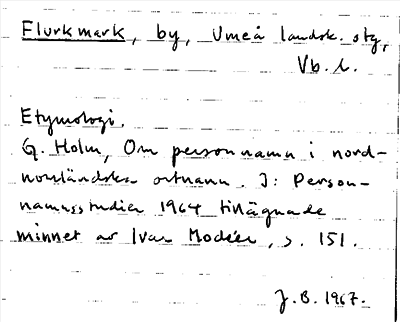 Flurkmark, by, Umeå landsk. stg,
Vb. l.
Etymologi.
G. Holm, Om personnamn i nord-
norrländska ortnamn. I: Person-
namnsstudier 1964 tillägnade
minnet av Ivar Modéer, s. 151.
J.B. 1967.